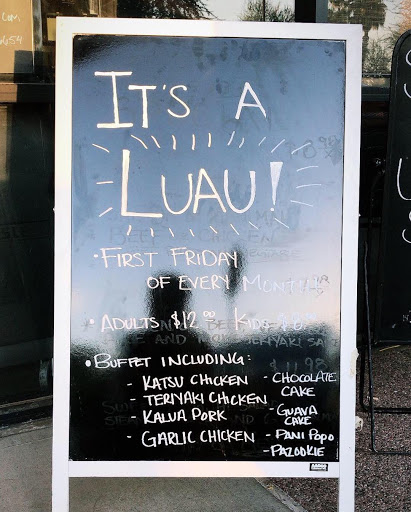 IT'S A
LUAU!
• FIRST FRIDAY
OF EVERY MONTH
• ADULTS $12.00 KIDS
• BUFFET INCLUDING:
- KATSU CHICKEN
- TERIYAKI CHICKEN
- KALUA PORK
- GARLIC CHICKEN
- CHOCOLATE
CAKE
- GUAVA
CAKE
- PANI POPO
- PAZOOKIE